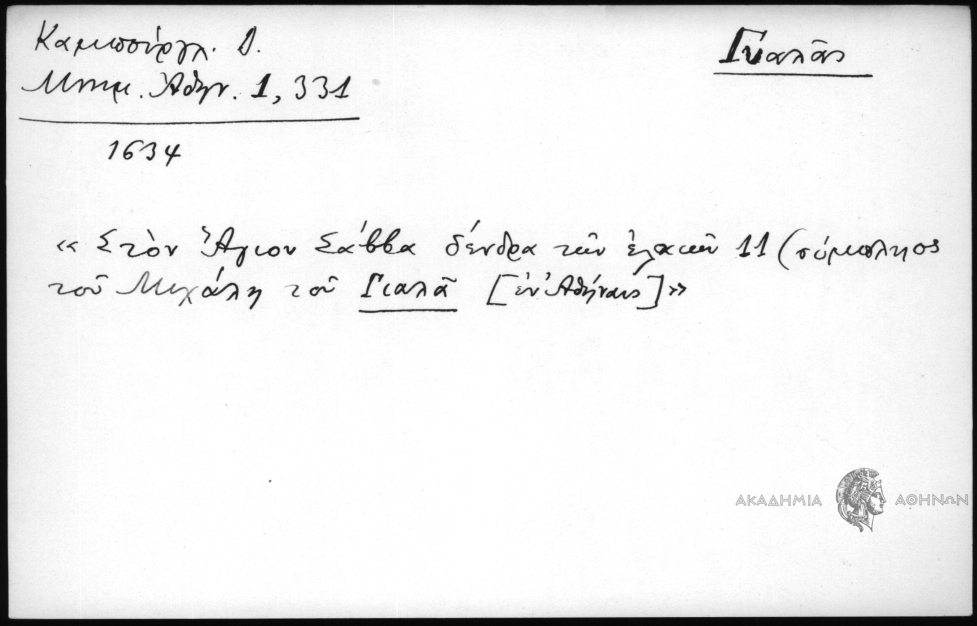 Καμπούργλ. Δ.
Γυαλᾶς
Μνημ. Ἀθην. 1, 331
1634
« Στὸν Ἅγιον Σάββα δένδρα τῶν ἐλαιῶν 11 (σύμπληος
τοῦ Μιχάλη τοῦ Γιαλᾶ [ἐν Ἀθήναις] »
ΑΚΑΔΗΜΙΑ ΑΘΗΝΩΝ